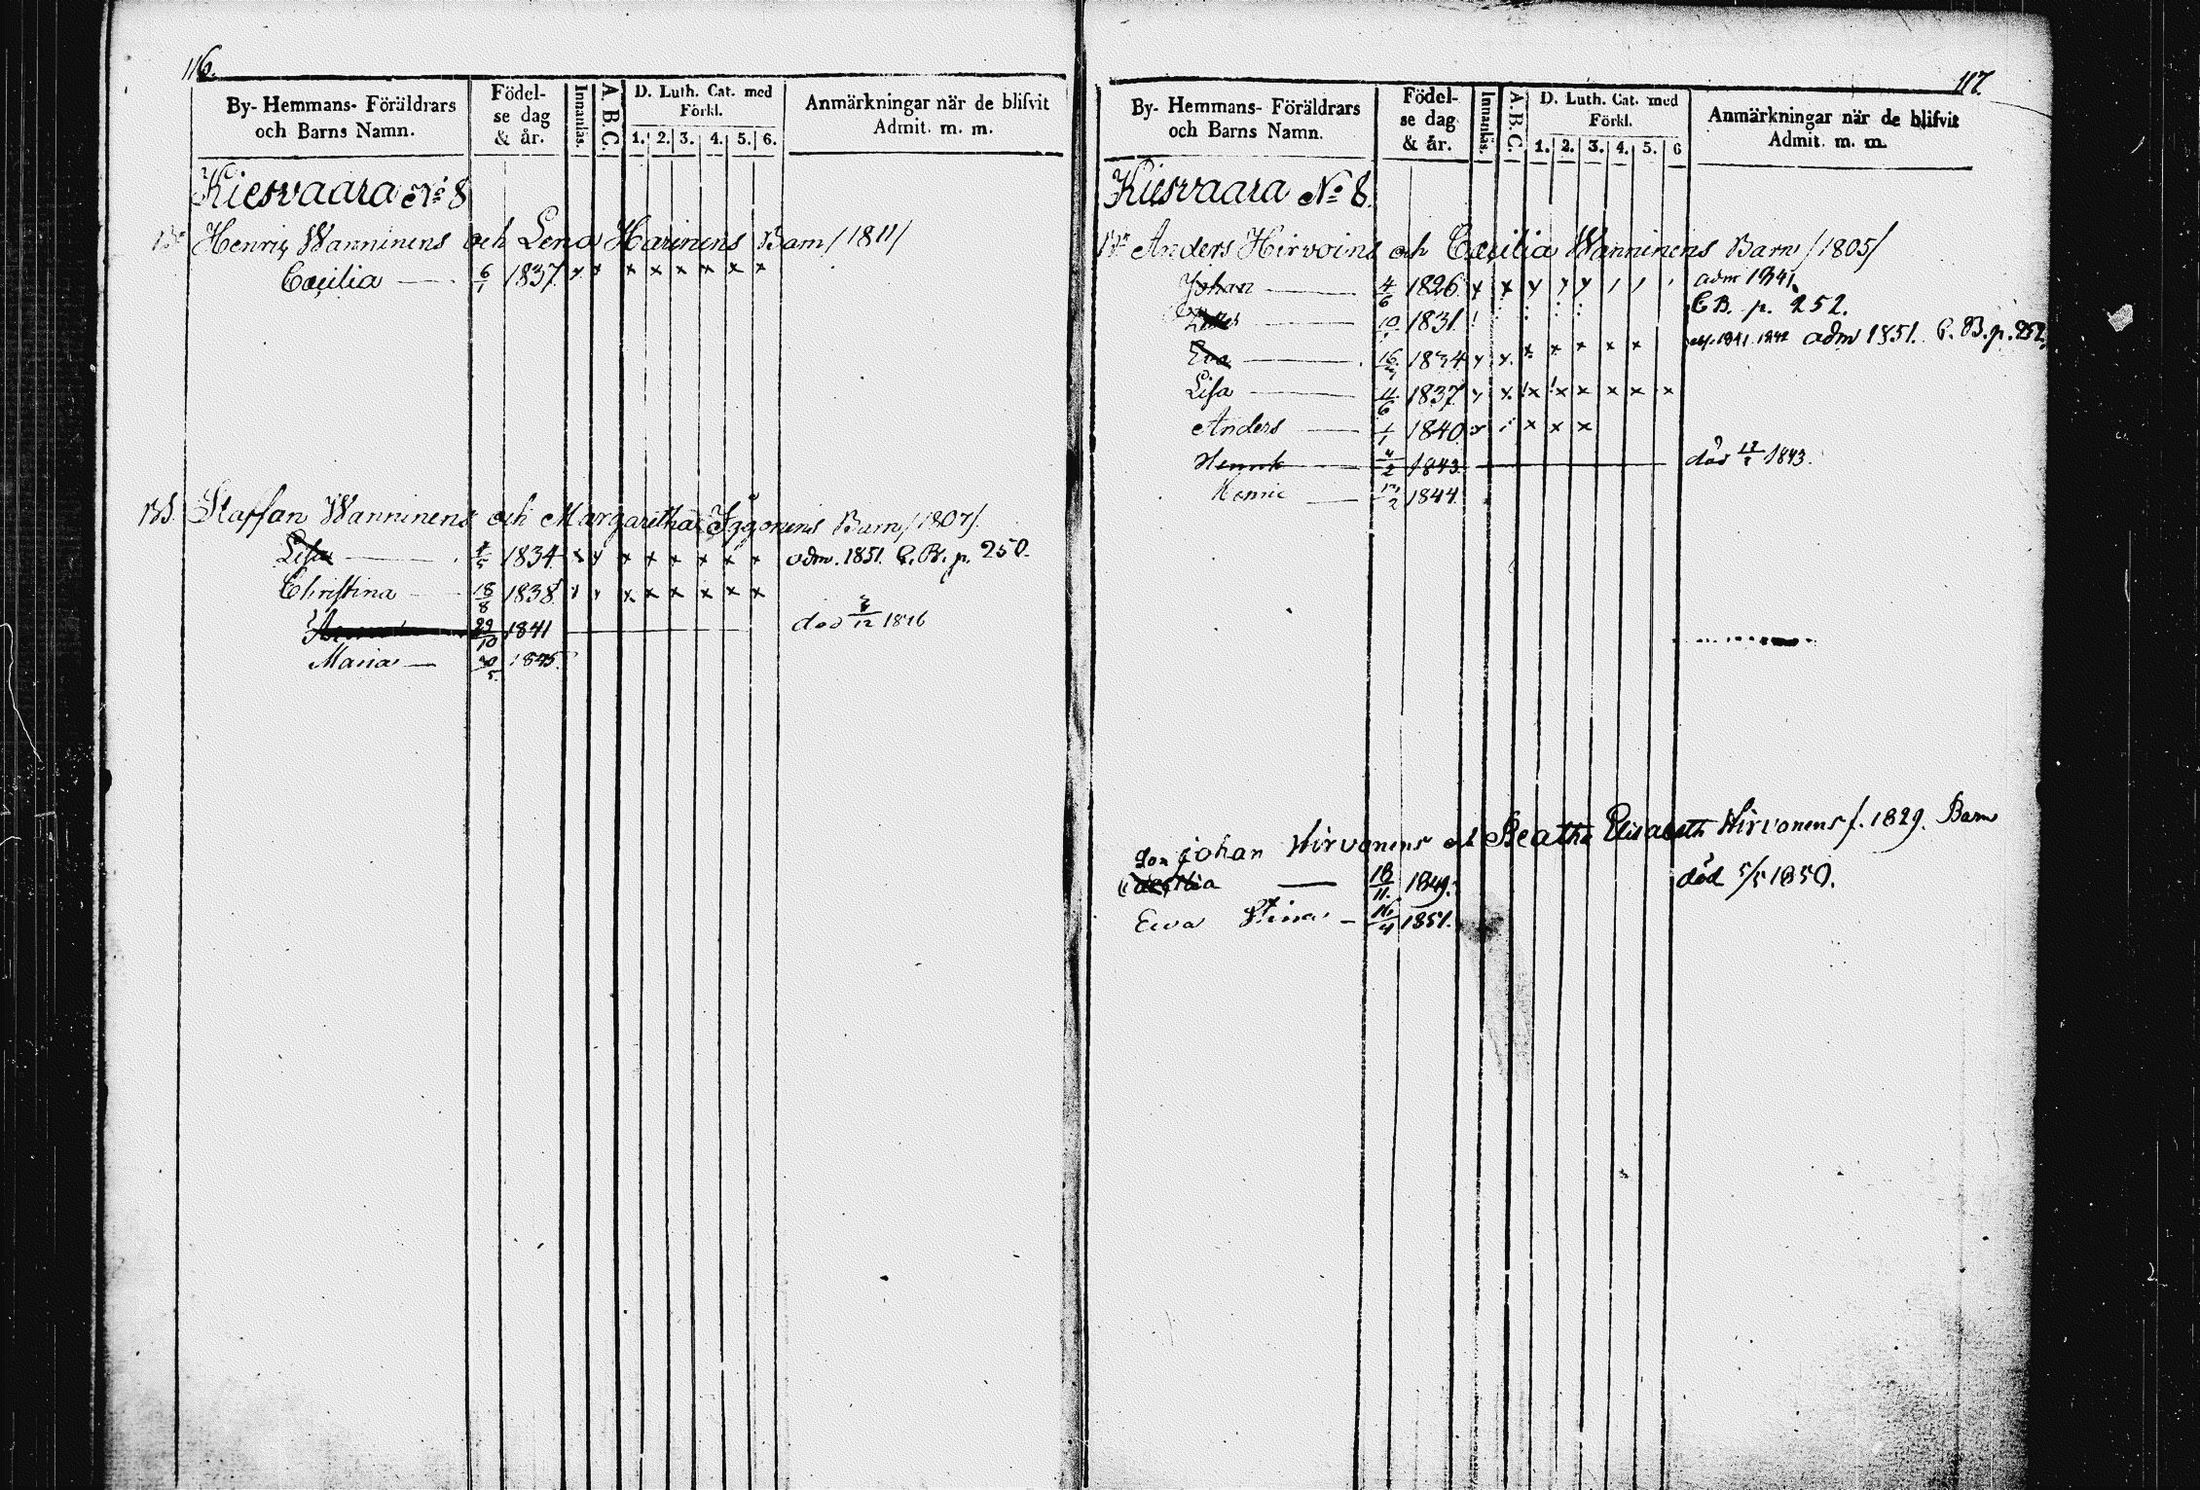 116.
By- Hemmans- Föräldrars och Barns Namn.
Födel- se dag & år.
Innanläs.
A. B. C.
D. Luth. Cat. med Förkl.
1. 2. 3. 4. 5. 6.
Anmärkningar när de blifvit Admit. m. m.
Kiesvaara No 8
Henric Wanninens och Lena Harinens Barn /1811/
Cæcilia 6/1 1837. x x x x x x x x
Staffan Wanninens och Margaretha Iggonens Barn /1807/.
Lisa 1834 x x x x x x x x adm. 1851. C. B. p. 250.
Christina 18/8 1838 x x x x x x x x
29/10 1841 död 1846
Maria 30/5. 1845.
117
By- Hemmans- Föräldrars och Barns Namn.
Födel- se dag & år.
Innanläs.
A. B. C.
D. Luth. Cat. med Förkl.
1. 2. 3. 4. 5. 6
Anmärkningar när de blifvit Admit. m. m.
Kiesvaara No 8.
Anders Hirvoins och Cæcilia Wanninens Barn /1805/
Johan 4/6 1826. adm 1841
1831 C B. p. 252.
Eva 1834 x x x x x x x adm 1851. C. B. p. 252.
Lisa 4/6 1837 x x x x x x x x
Anders 1/1 1840 x x x x
Henrik 1843. död 1843.
Henric 1844.
Johan Hirvonens och Beatha Elisabeth Hirvonens f. 1829. Barn
Cæcilia 18/11. 1849. död 5/5 1850.
Ewa Stina 16/4 1851.